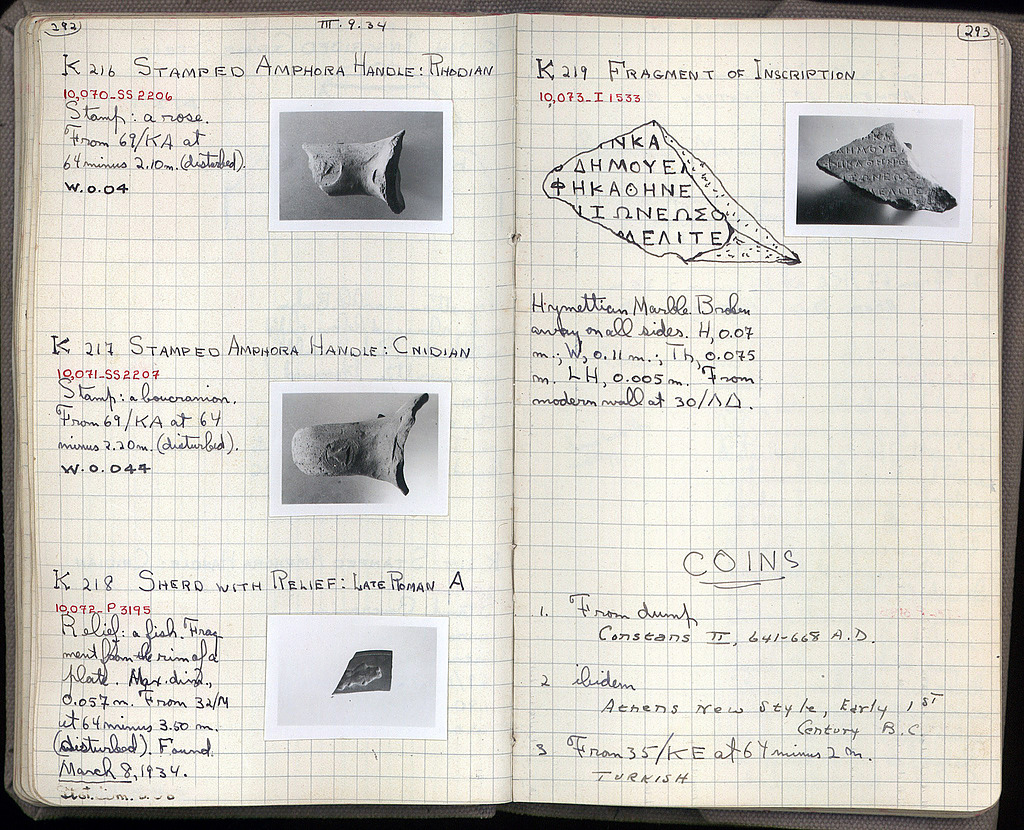 292
III. 9. 34
K 216 STAMPED AMPHORA HANDLE: RHODIAN
10,070-SS 2206
Stamp: a rose.
From 69/KA at
64 minus 2.10 m. (disturbed).
W. 0.04
K 217 STAMPED AMPHORA HANDLE: CNIDIAN
10,071-SS2207
Stamp: a boucranion.
From 69/KA at 64
minus 2.20 m. (disturbed).
W. 0.044
K 218 SHERD WITH RELIEF: LATE ROMAN A
10,072-P 3195
Relief: a fish. Frag
ment from the rim of a
plate. Max. dim.,
0.057 m. From 32/M
at 64 minus 3.50 m.
(disturbed). Found
March 8, 1934.
293
K 219 FRAGMENT OF INSCRIPTION
10,073-I 1533
ΝΚΑ
ΔΗΜΟΥΕΛ
ΦΗΚΑΘΗΝΕ
ΙΩΝΕΩΣΟ
ΜΕΛΙΤΕ
Hymettian Marble. Broken
away on all sides. H, 0.07
m.; W, 0.11 m.; Th, 0.075
m. LH, 0.005 m. From
modern wall at 30/ΛΔ.
COINS
1. From dump
Constans II, 641-668 A.D.
2 ibidem
Athens New Style, Early 1ST
Century B.C.
3 From 35/KE at 64 minus 2 m.
TURKISH